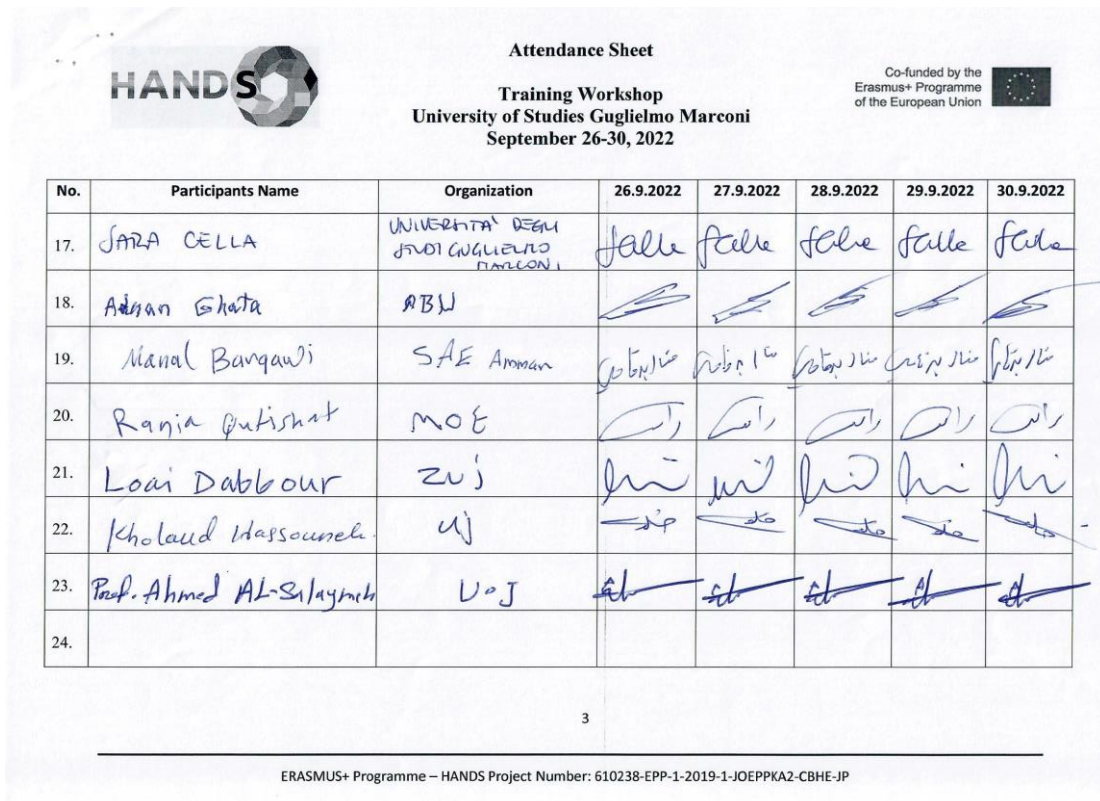 HANDS
Attendance Sheet
Training Workshop
University of Studies Guglielmo Marconi
September 26-30, 2022
Co-funded by the
Erasmus+ Programme
of the European Union
No. Participants Name Organization 26.9.2022 27.9.2022 28.9.2022 29.9.2022 30.9.2022
17. SARA CELLA UNIVERSITA' DEGLI
STUDI GUGLIELMO
MARCONI
18. Adnan Ghata
19. Manal Barqawi SAE Amman
20. Rania Qutishat MOE
21. Loai Dabbour ZUJ
22. Kholoud Hassouneh. UJ
23. Prof. Ahmed AL-Salaymeh UoJ
24.
3
ERASMUS+ Programme – HANDS Project Number: 610238-EPP-1-2019-1-JOEPPKA2-CBHE-JP